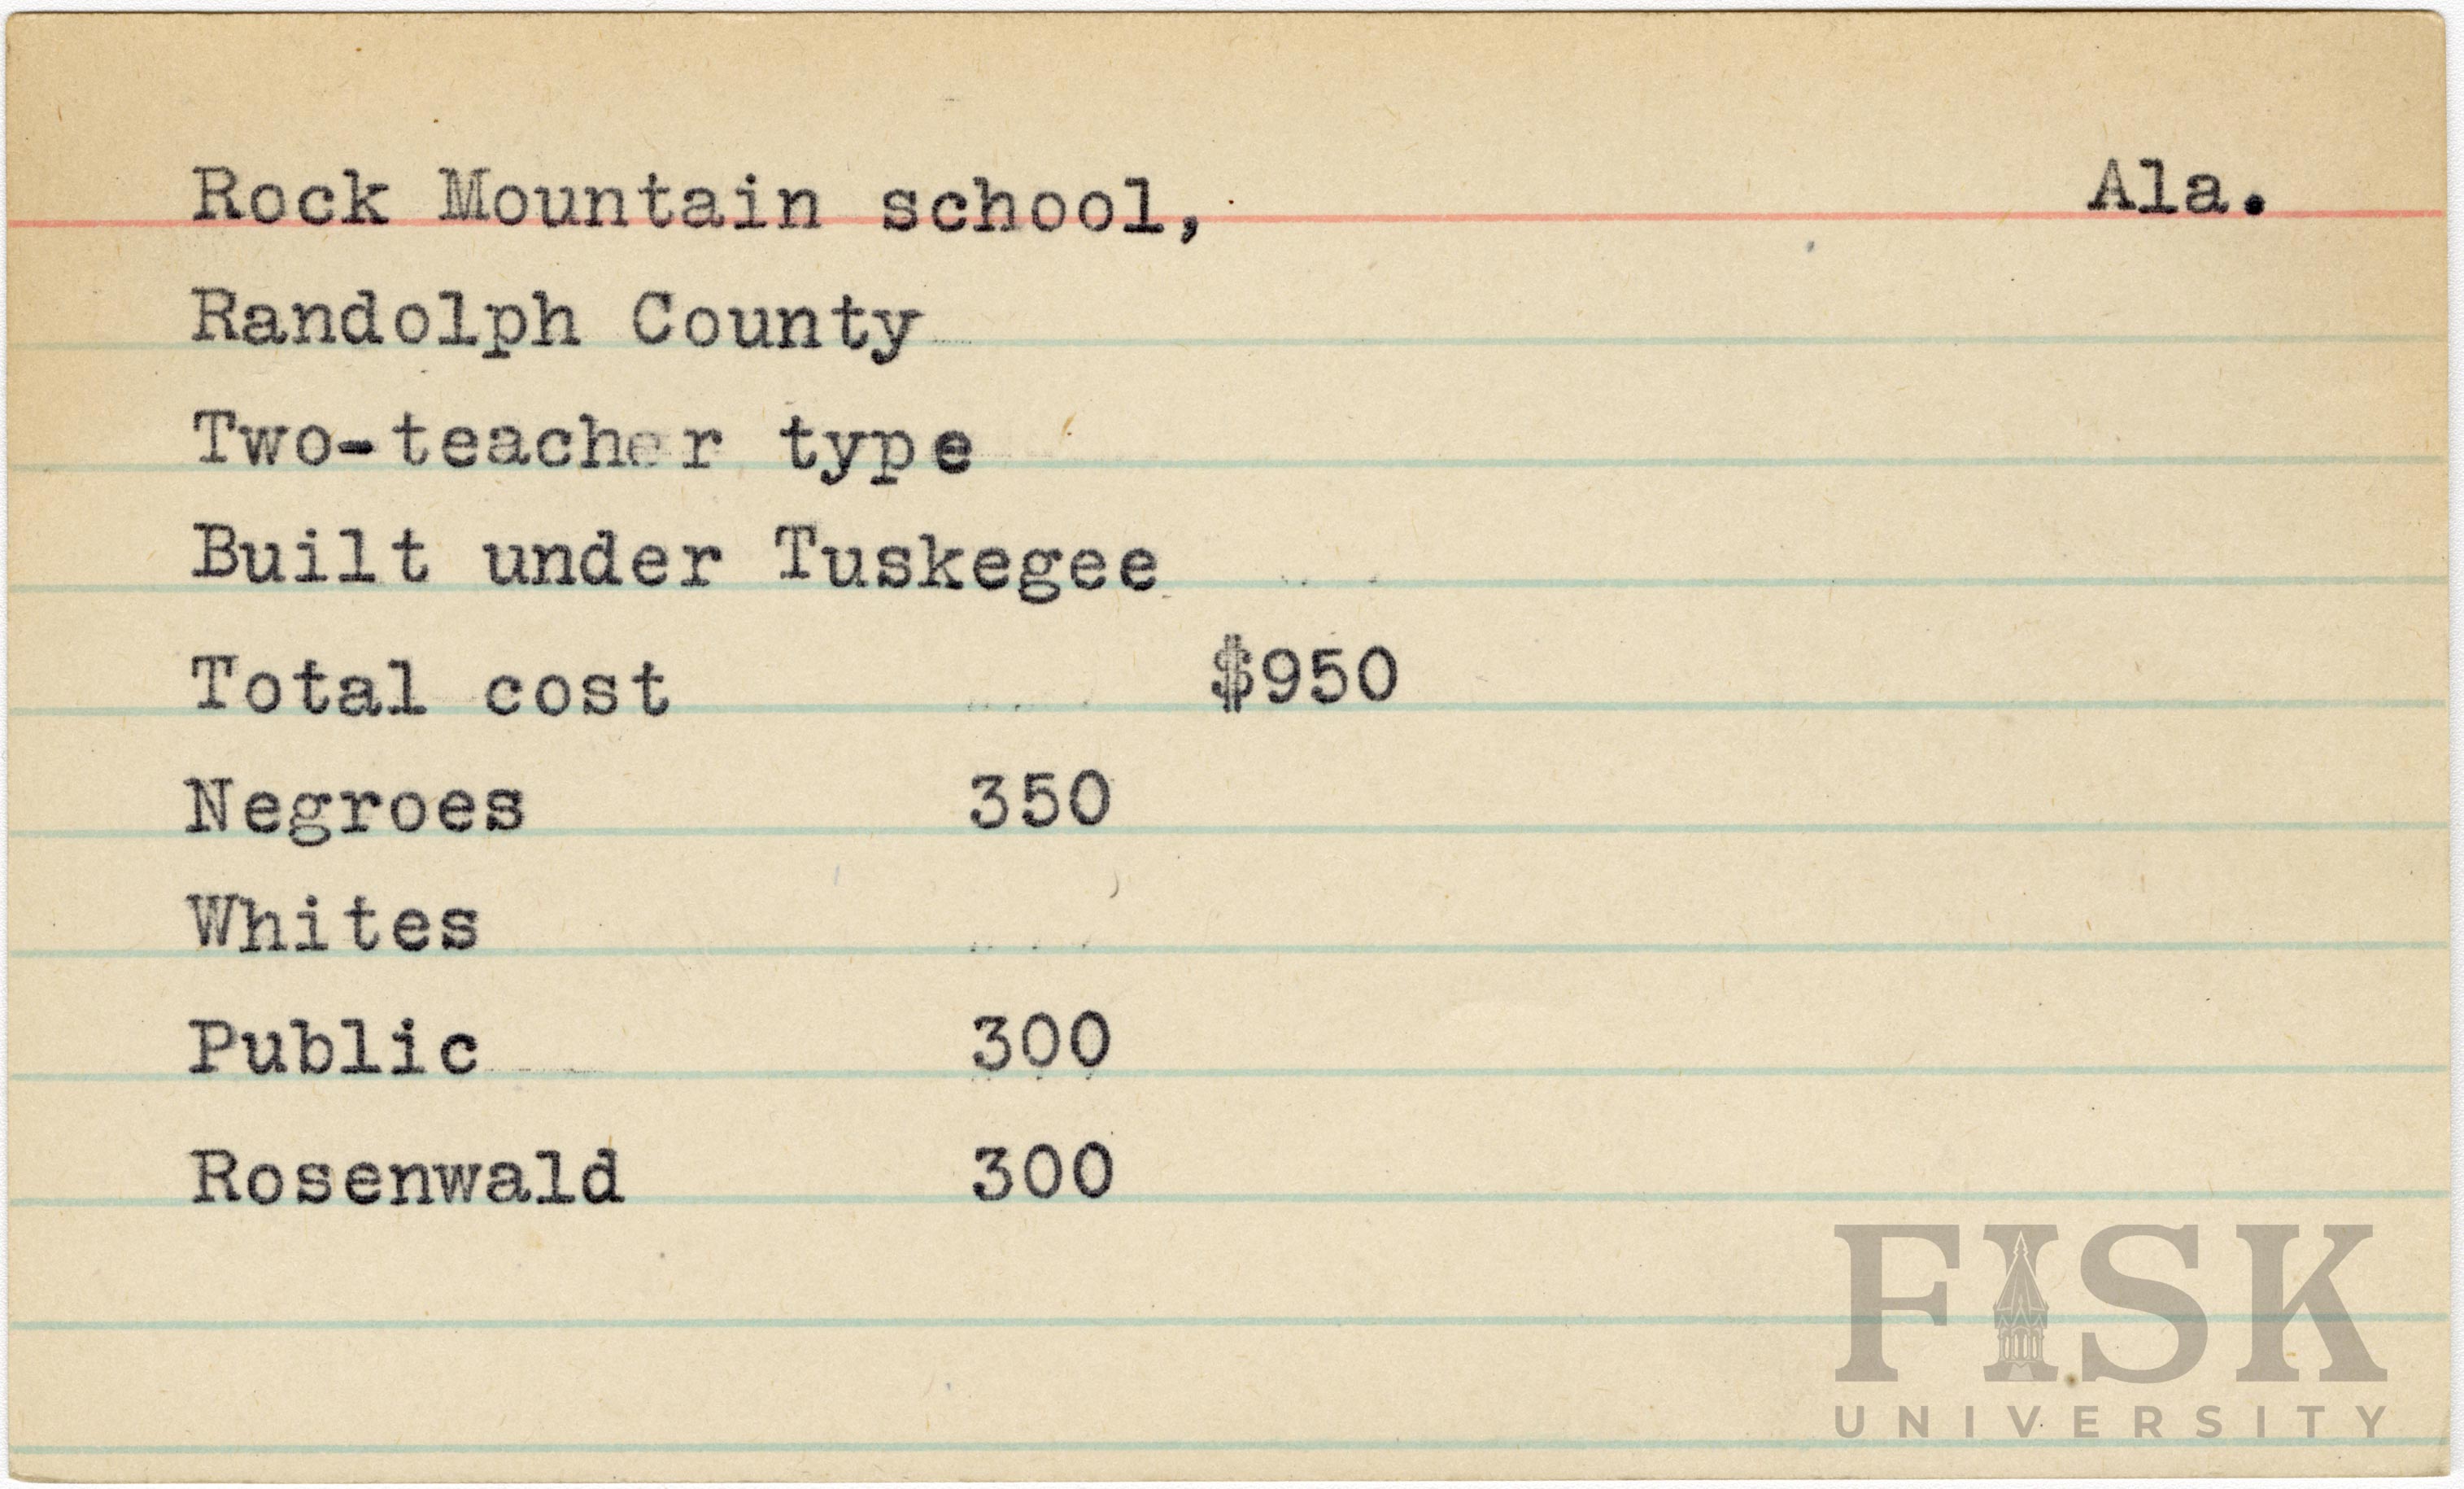 Rock Mountain school, Ala.
Randolph County
Two-teacher type
Built under Tuskegee
Total cost $950
Negroes 350
Whites
Public 300
Rosenwald 300
FISK
UNIVERSITY